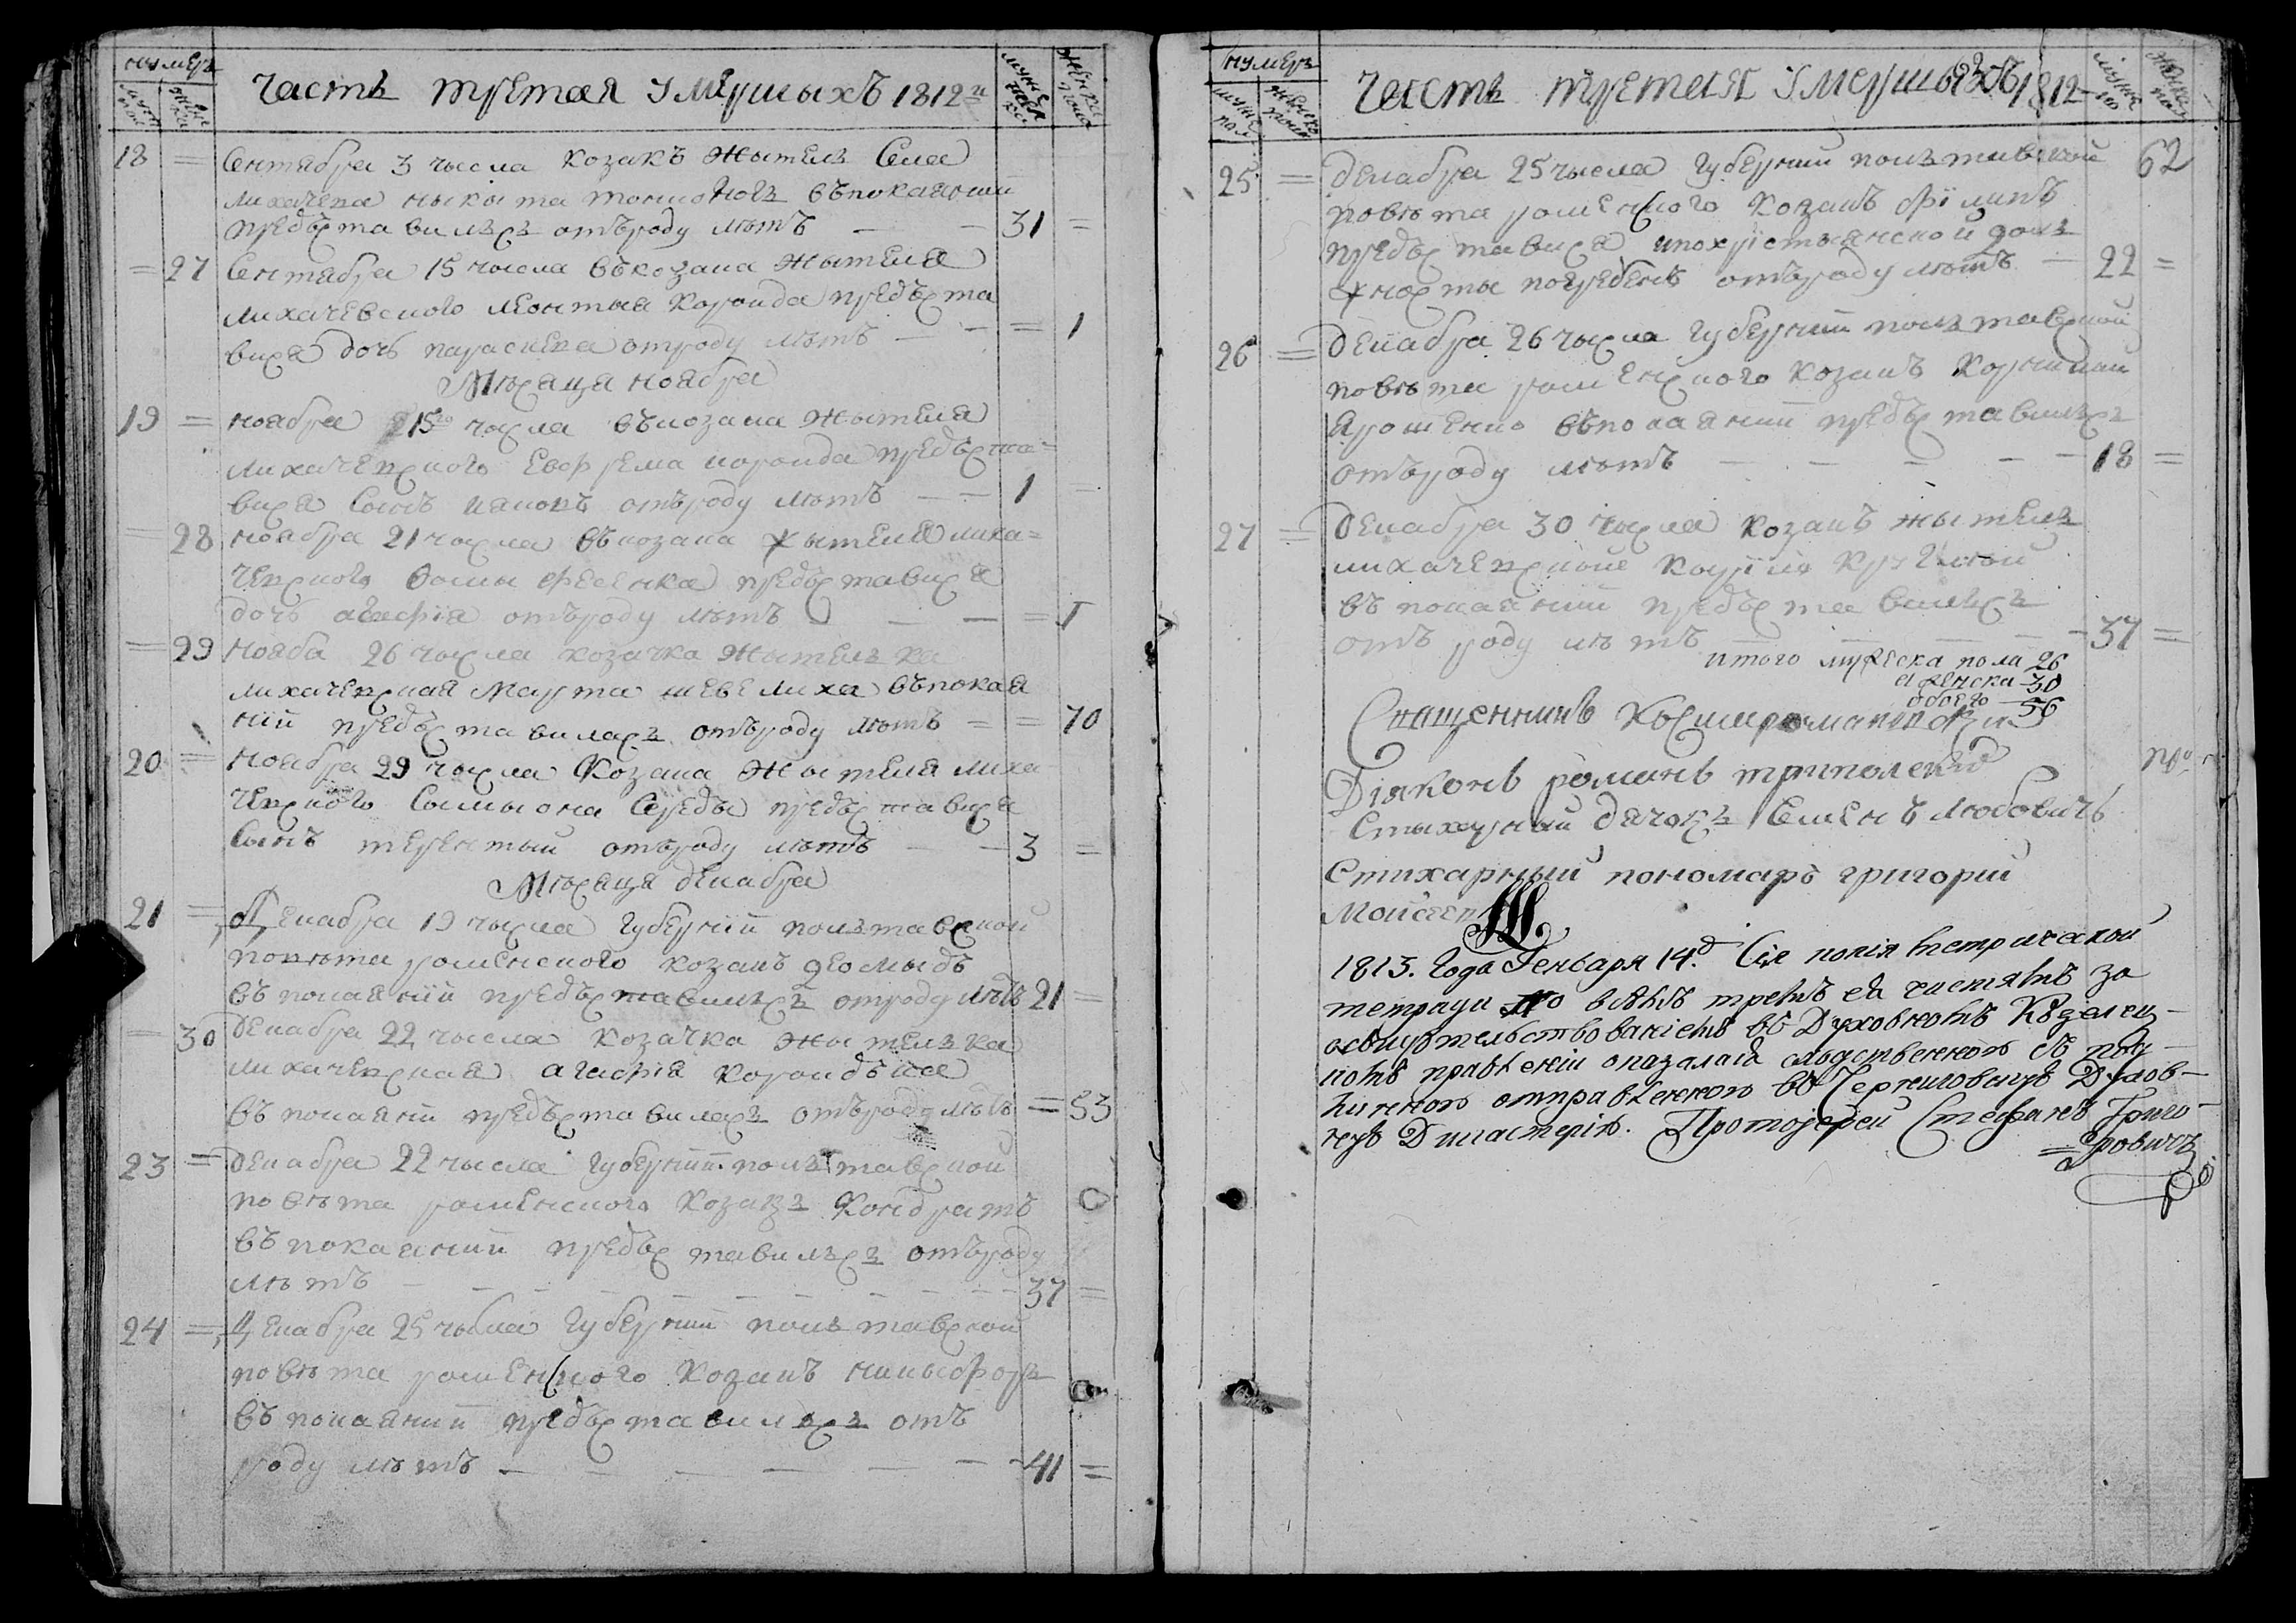 нумеръ
мужеска пола
женска
часть третая Умершыхъ 1812го
мужеска пола
женска пола
18 = Сентябра 3 числа козакъ жытель Села
лихачева ныкыта тонконогъ въпокаяніи
предъставилъсъ отъроду лѣтъ — — 31 =
= 27 Сентября 15 числа въкозака жытеля
лихачевского леонтыя короида предъста
вися дочь параскева отроду лѣтъ — — = 1
Мѣсяця ноября
19 = ноября 15го числа въкозака жытеля
лихачевского Евфрема короида предъста=
вися Сынъ иаковъ отъроду лѣтъ — — 1 =
= 28 ноября 21 числа въкозака жытеля лиха=
чевского Фомы фесенка предъставися
дочь агафія отъроду лѣтъ — — = 1
= 29 нояба 26 числа козачка жытелька
лихачевская Марта шевелиха въпокая
ніи предъставиласъ отъроду лѣтъ = = 70
20 = ноября 29 числа Козака Жытеля лиха
чевского Сымыона Середы предъставися
Сынъ терентый отъроду лѣтъ — — 3 =
Мѣсяця декабра
21 = Декабра 19 числа Губерніи полътавской
повѣта роменского козакъ деомыдъ
въ покаяніи предъставилъсъ отроду лѣтъ 21 =
= 30 Декабра 22 числа козачка жытелька
лихачевская агафія короидъка
въ покаяніи предъставиласъ отъроду лѣтъ = 53
23 = Декабра 22 числа Губерніи полътавской
повѣта роменского Козакъ Кондратъ
въ покаяніи предъставилъсъ отъроду
лѣтъ — — — — — — — — 37 =
24 = Декабра 25 числа Губерніи полътавской
повѣта роменского Козакъ никыфоръ
въ покаяніи предъставилъсъ отъ
роду лѣтъ — — — — — — 41 =
нумеръ
мужска пола
женска пола
Часть третая Умершыхъ 1812
мужеска по
женска по
62
25 = Декабра 25 числа Губерніи полътавской
повѣта роменского Козакъ філипъ
предъставися ипохрістыянской долъ
жносты погребенъ отъроду лѣтъ — 22 =
26 = Декабра 26 числа Губерніи полътавской
повѣта роменского козакъ Корнилии
ярошенко въпокаяніи предъставилъсъ
отъроду лѣтъ — — — — — 18 =
27 = Декабра 30 числа козакъ жытель
лихачевской
въ покаяніи предъставилъсъ
отъ роду лѣтъ — — — — 37 =
итого мужеска пола 26
а женска 30
обоего — 56
Священникъ
Діяконъ романъ триполский
Стыхарный дячокъ Семенъ Любовичъ
Стихарный пономарь григорий
Мойсеевъ
1813. Года Генваря 14д. Сія копія метрической
тетради по всѣмъ тремъ ея частямъ за
освидѣтельствованіемъ въ Духовномъ Козелец-
комъ правленіи оказалась сходственною съ под-
линною отправленною въ Черниговскую Духов-
ную Дикастерію. Протоіерей Стефанъ Григо-
=ровичъ